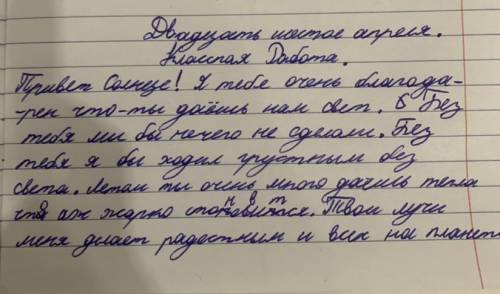 Двадцать шостое апреля.
Класная Работа.
Привет Солнце! Я тебе очень благода-
-рен что-ты даёшь нам свет. Без
тебя ми бы нечего не сделали. Без
тебя я бы ходил грустным без
света. Летом ты очень много даёшь тепла
что аж жарко становится. Твои лучи
меня делает радостным и всех на планете